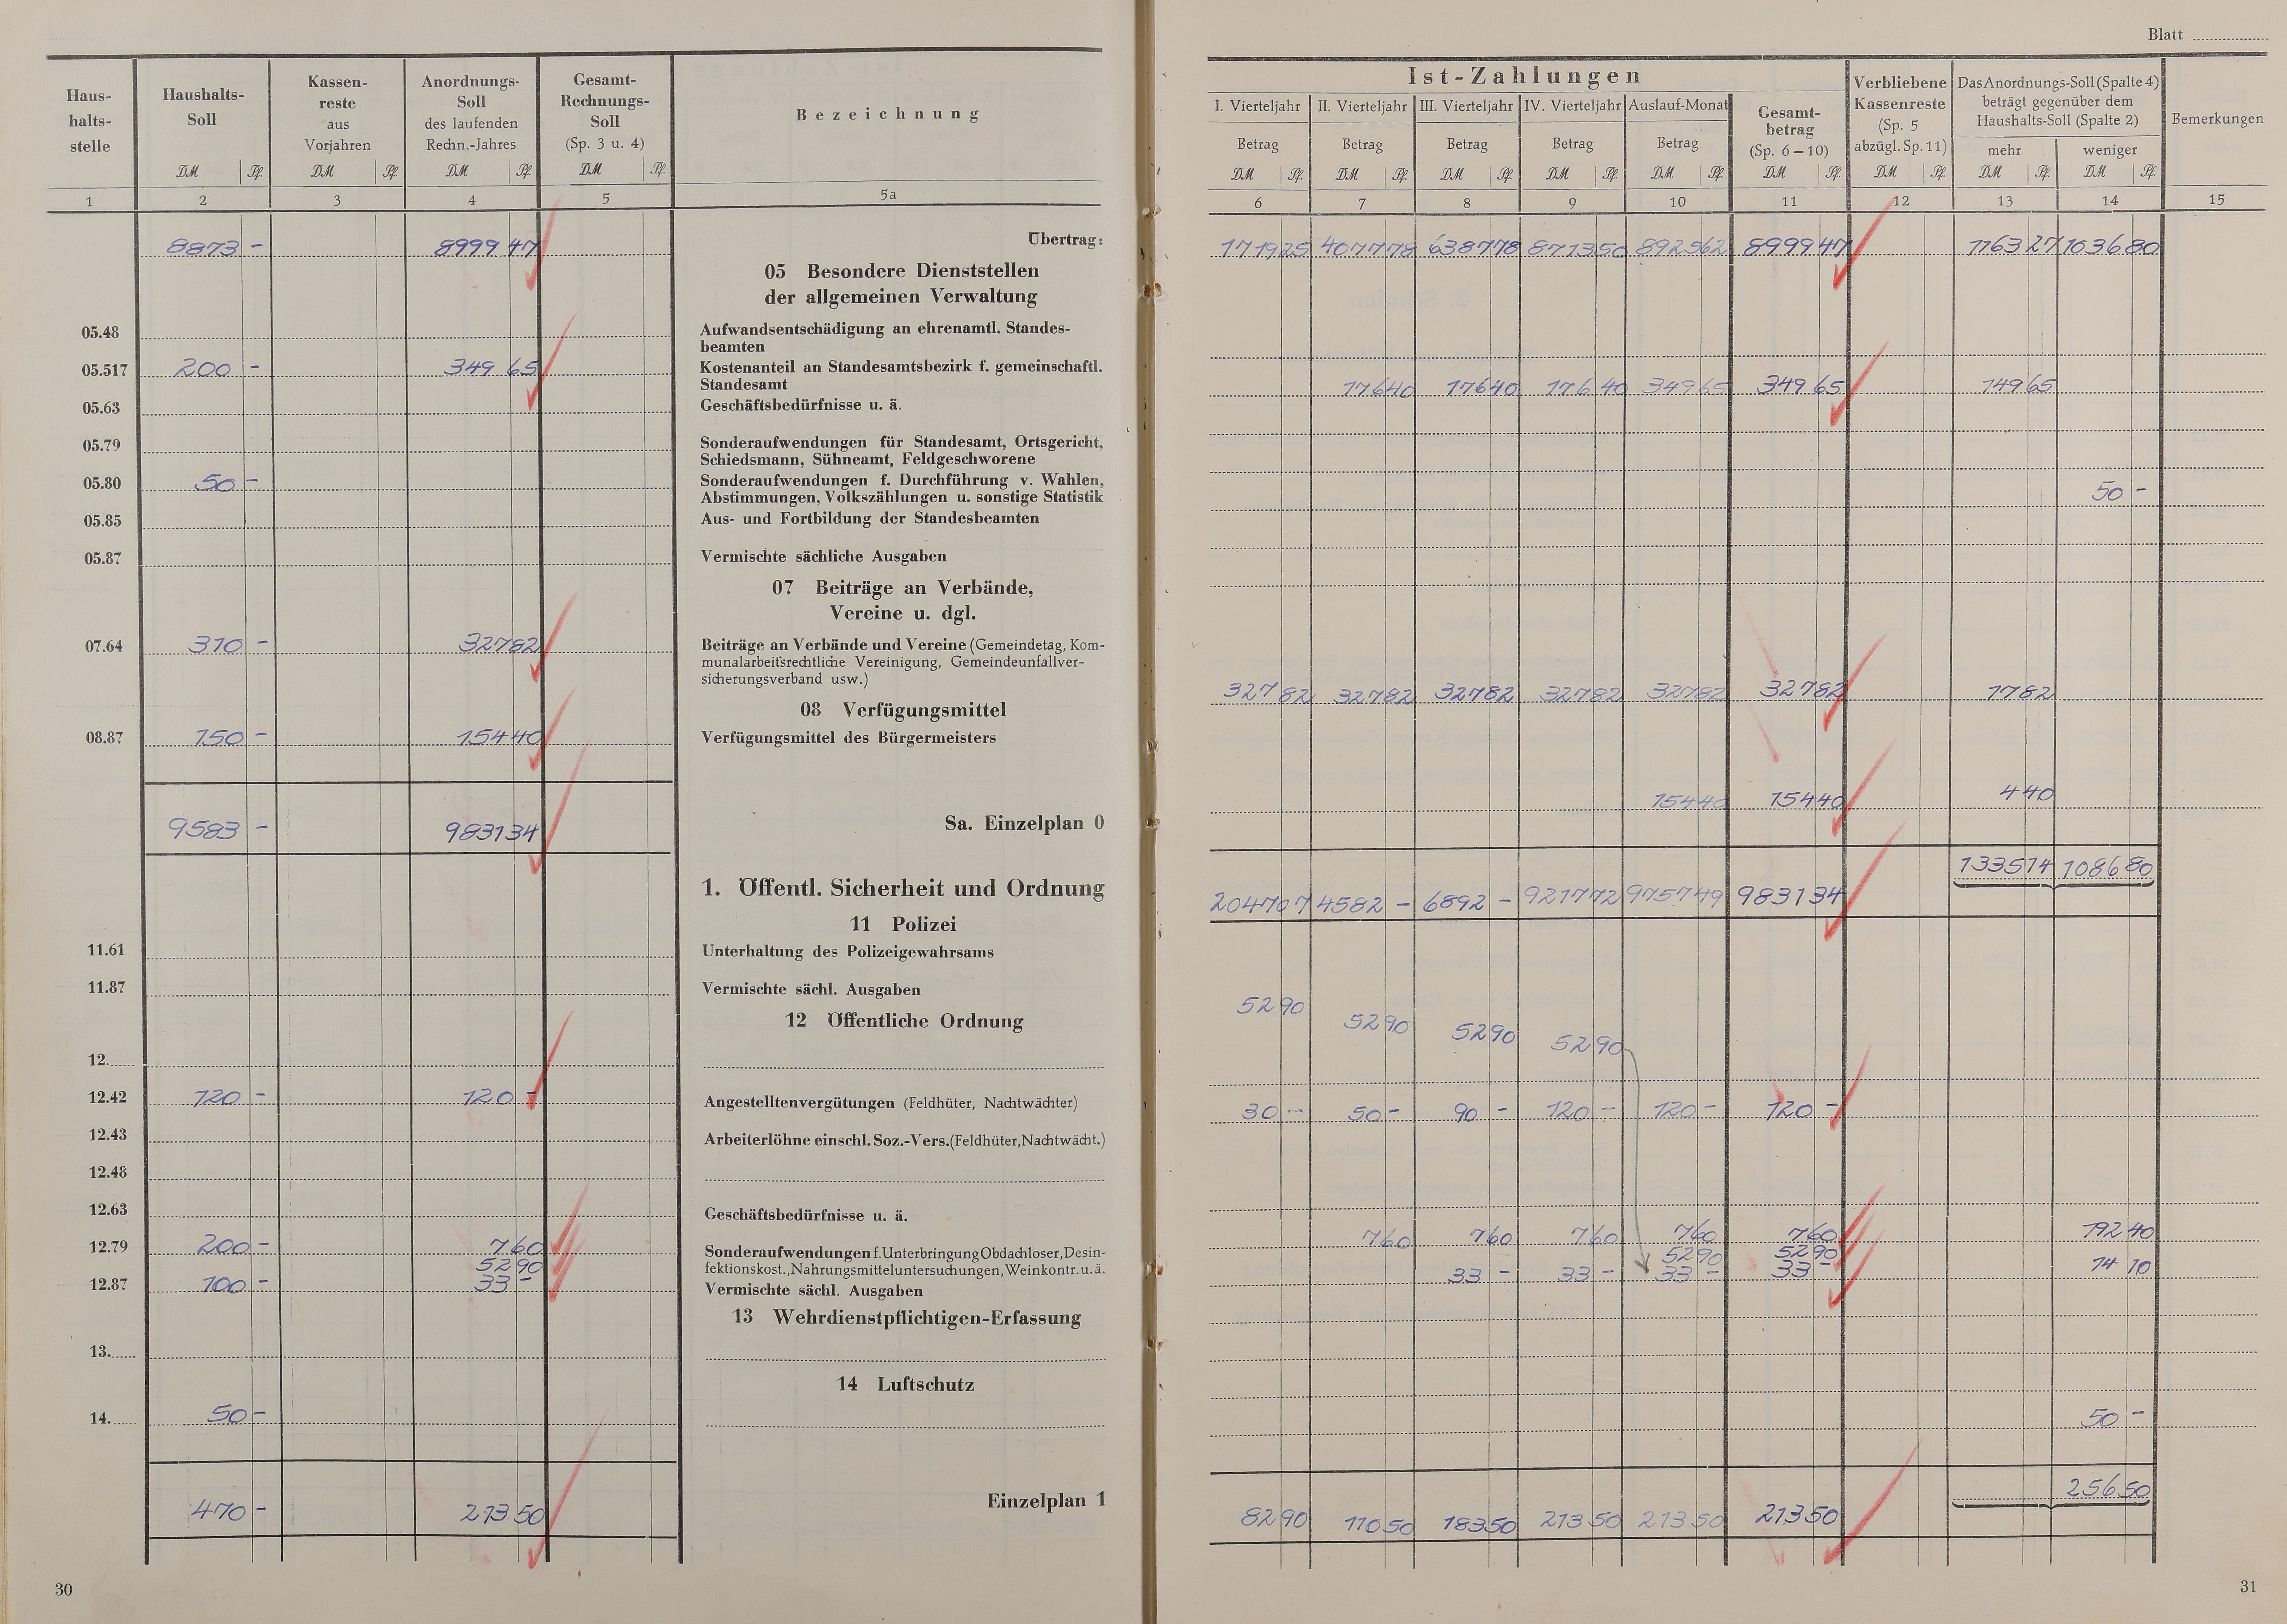 Blatt
Haus-
halts-
stelle
Haushalts-
Soll
DM Pf.
Kassen-
reste
aus
Vorjahren
DM Pf.
Anordnungs-
Soll
des laufenden
Rechn.-Jahres
DM Pf.
Gesamt-
Rechnungs-
Soll
(Sp. 3 u. 4)
DM Pf.
Bezeichnung
1 2 3 4 5 5a
8873 - 8999 47 Übertrag:
05 Besondere Dienststellen
der allgemeinen Verwaltung
05.48 Aufwandsentschädigung an ehrenamtl. Standes-
beamten
05.517 200 - 349 65 Kostenanteil an Standesamtsbezirk f. gemeinschaftl.
Standesamt
05.63 Geschäftsbedürfnisse u. ä.
05.79 Sonderaufwendungen für Standesamt, Ortsgericht,
Schiedsmann, Sühneamt, Feldgeschworene
05.80 50 - Sonderaufwendungen f. Durchführung v. Wahlen,
Abstimmungen, Volkszählungen u. sonstige Statistik
05.85 Aus- und Fortbildung der Standesbeamten
05.87 Vermischte sächliche Ausgaben
07 Beiträge an Verbände,
Vereine u. dgl.
07.64 310 - 327 82 Beiträge an Verbände und Vereine (Gemeindetag, Kom-
munalarbeitsrechtliche Vereinigung, Gemeindeunfallver-
sicherungsverband usw.)
08 Verfügungsmittel
08.87 150 - 154 40 Verfügungsmittel des Bürgermeisters
9583 - 9831 34 Sa. Einzelplan 0
1. Öffentl. Sicherheit und Ordnung
11 Polizei
11.61 Unterhaltung des Polizeigewahrsams
11.87 Vermischte sächl. Ausgaben
12 Öffentliche Ordnung
12.
12.42 120 - 120 - Angestelltenvergütungen (Feldhüter, Nachtwächter)
12.43 Arbeiterlöhne einschl. Soz.-Vers. (Feldhüter, Nachtwächt.)
12.48
12.63 Geschäftsbedürfnisse u. ä.
12.79 200 - 7 60 Sonderaufwendungen f. Unterbringung Obdachloser, Desin-
52 90 fektionskost., Nahrungsmitteluntersuchungen, Weinkontr. u. ä.
12.87 100 - 33 - Vermischte sächl. Ausgaben
13 Wehrdienstpflichtigen-Erfassung
13.
14 Luftschutz
14. 50 -
470 - 213 50 Einzelplan 1
30
Ist-Zahlungen
I. Vierteljahr
Betrag
DM Pf.
II. Vierteljahr
Betrag
DM Pf.
III. Vierteljahr
Betrag
DM Pf.
IV. Vierteljahr
Betrag
DM Pf.
Auslauf-Monat
Betrag
DM Pf.
Gesamt-
betrag
(Sp. 6 – 10)
DM Pf.
Verbliebene
Kassenreste
(Sp. 5
abzügl. Sp. 11)
DM Pf.
Das Anordnungs-Soll (Spalte 4)
beträgt gegenüber dem
Haushalts-Soll (Spalte 2)
mehr weniger
DM Pf. DM Pf.
Bemerkungen
6 7 8 9 10 11 12 13 14 15
1719 25 4077 78 6387 78 8713 50 8925 62 8999 47 1163 27 1036 80
176 40 176 40 176 40 349 65 349 65 149 65
50 -
327 82 327 82 327 82 327 82 327 82 327 82 17 82
154 40 154 40 4 40
1335 14 1086 80
2047 07 4582 - 6892 - 9217 72 9757 49 9831 34
52 90 52 90 52 90 52 90
30 - 50 - 90 - 120 - 120 - 120 -
7 60 7 60 7 60 7 60 7 60 192 40
52 90 52 90
33 - 33 - 33 - 33 - 14 10
50 -
256 50
82 90 110 50 183 50 213 50 213 50 213 50
31